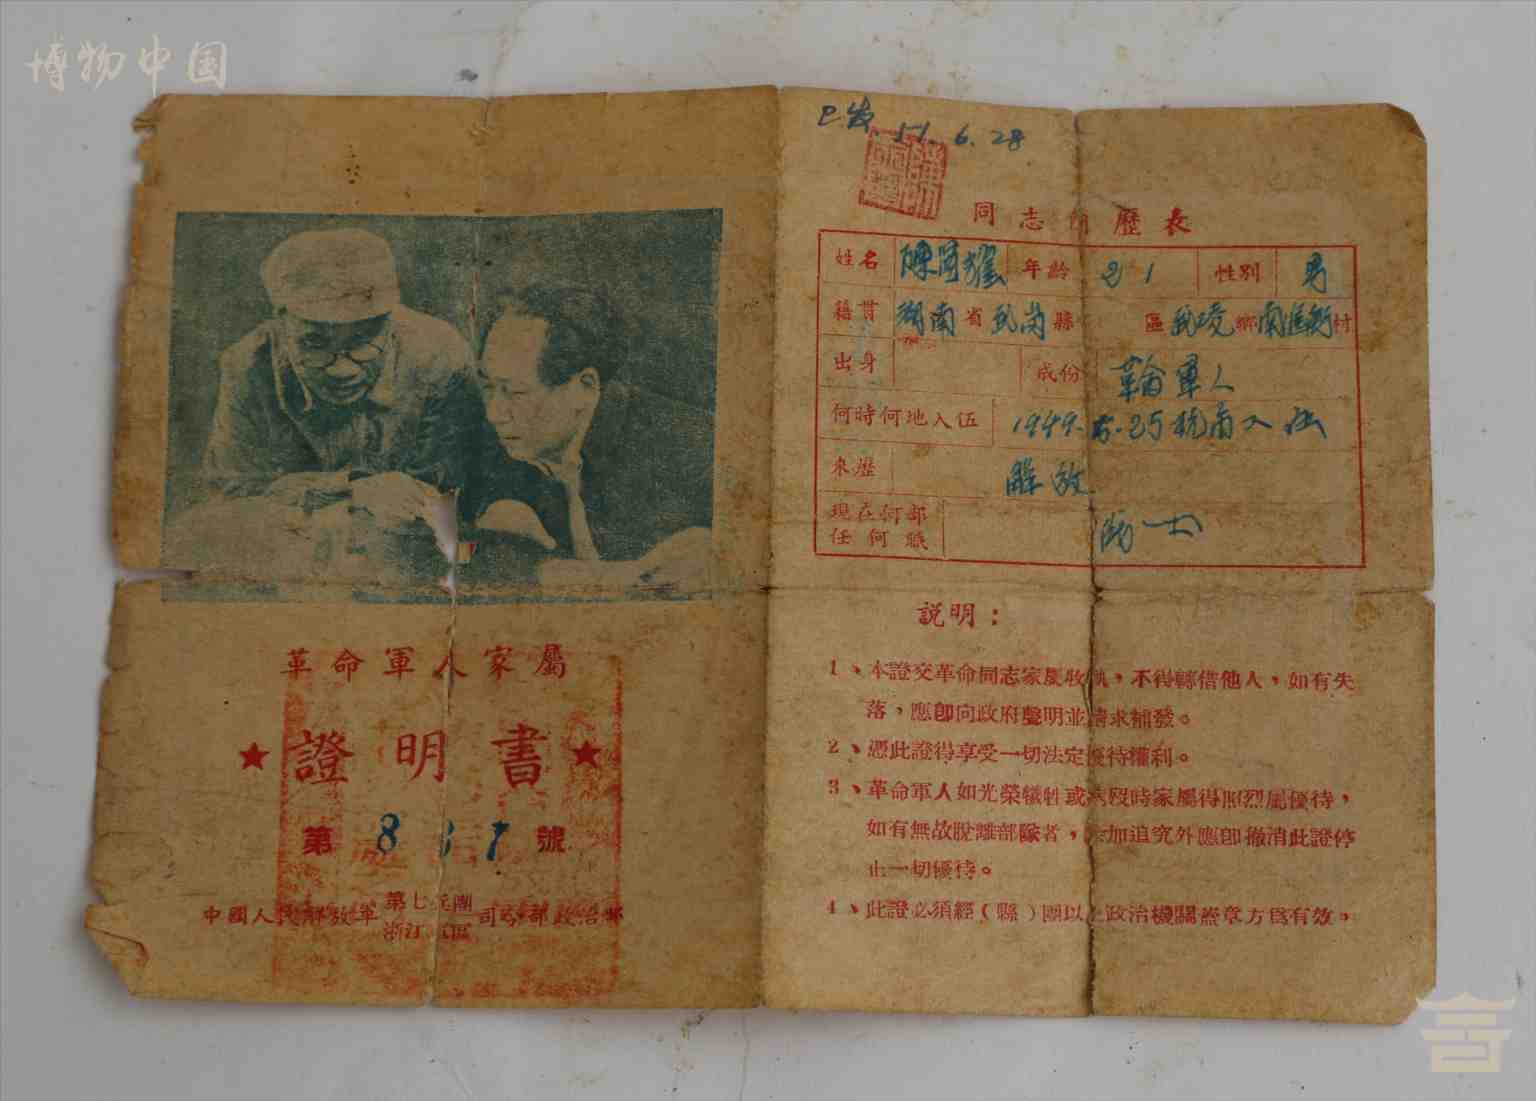 博物中国
革命軍人家屬
★證明書★
第 8 3 7 號
中國人民解放軍 第七兵團 浙江軍區 司令部政治部
已发. 51. 6. 28
同志簡歷表
姓名 陳 年齡 21 性別 男
籍貫 湖南省武岡縣 區武陵鄉南 村
出身 成份 革命軍人
何時何地入伍 1949.5.25杭甫入伍
來歷 解放
現在何部任何職 战士
説明：
1、本證交革命同志家屬收執，不得轉借他人，如有失
落，應卽向政府聲明並請求補發。
2、憑此證得享受一切法定優待權利。
3、革命軍人如光榮犧牲或病歿時家屬得照烈屬優待，
如有無故脫離部隊者，除加追究外應卽撤消此證停
止一切優待。
4、此證必須經（縣）團以上政治機關蓋章方爲有效。